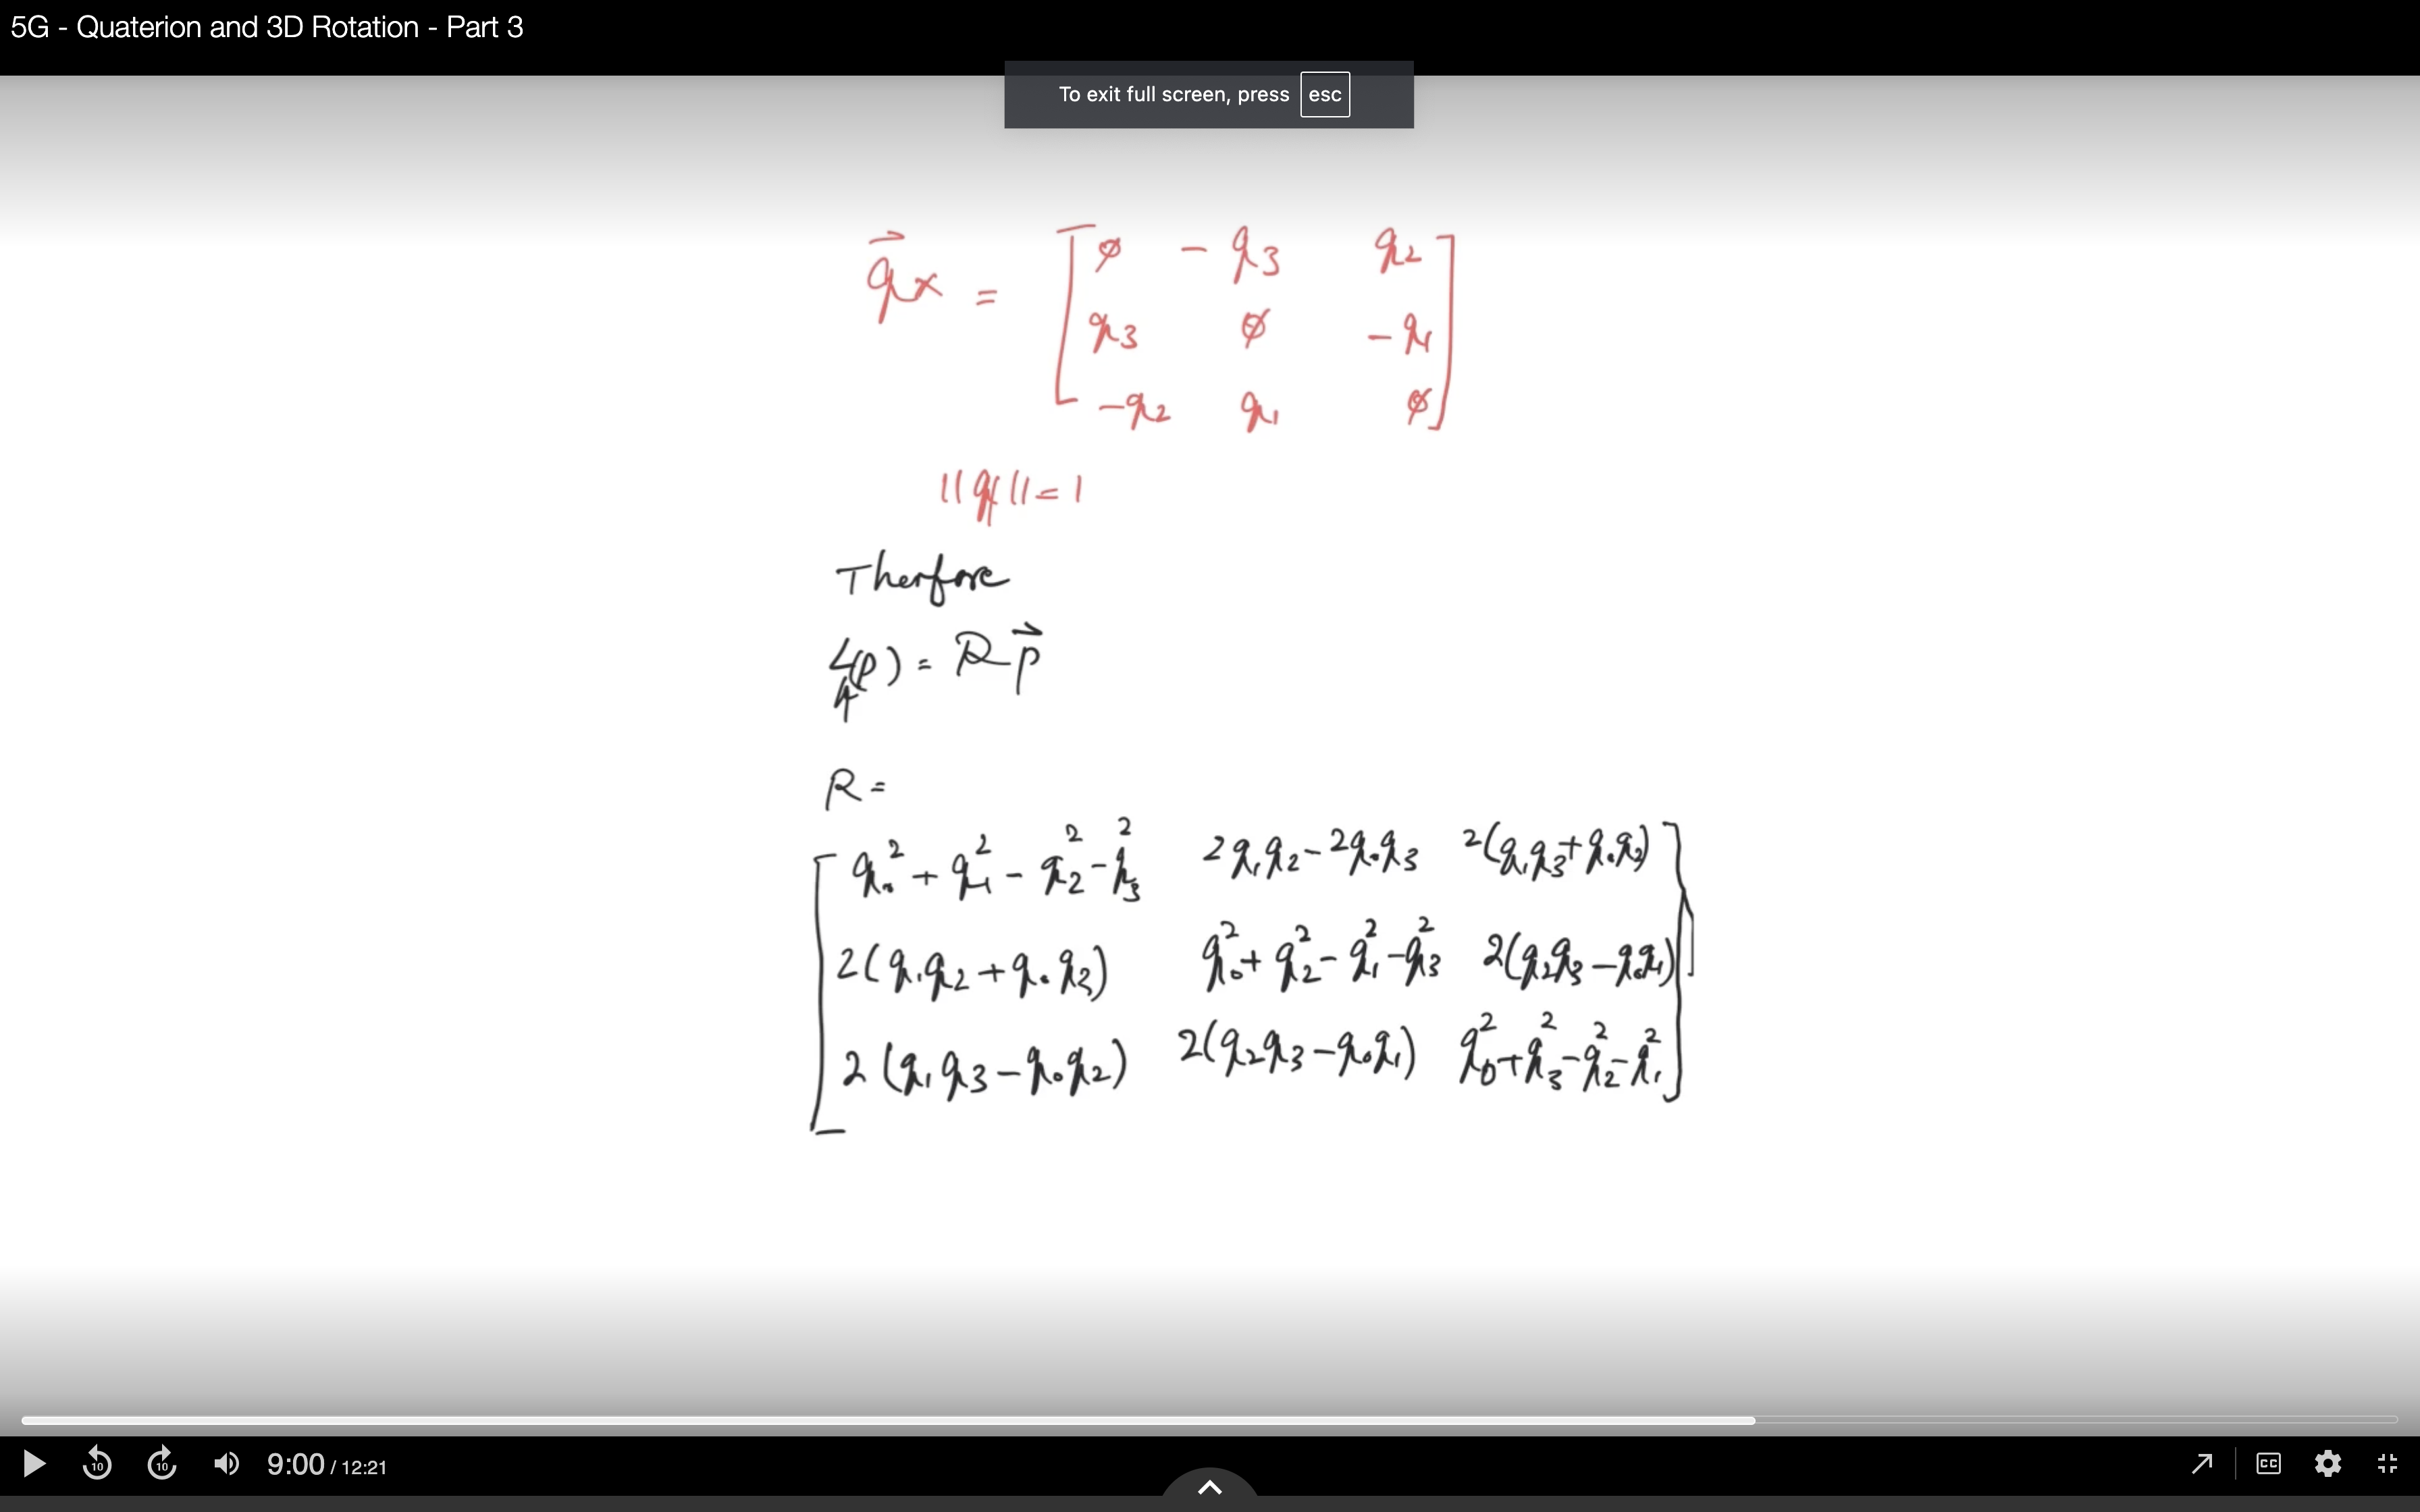 5G - Quaterion and 3D Rotation - Part 3
To exit full screen, press esc
q⃗x = [ 0 -q₃ q₂
q₃ 0 -q₁
-q₂ q₁ 0 ]
||q|| = 1
Therfore
L_q(p) = R p⃗
R =
[ q₀² + q₁² - q₂² - q₃² 2q₁q₂ - 2q₀q₃ 2(q₁q₃ + q₀q₂)
2(q₁q₂ + q₀q₃) q₀² + q₂² - q₁² - q₃² 2(q₂q₃ - q₀q₁)
2(q₁q₃ - q₀q₂) 2(q₂q₃ - q₀q₁) q₀² + q₃² - q₂² - q₁² ]
10 10 9:00 / 12:21 CC